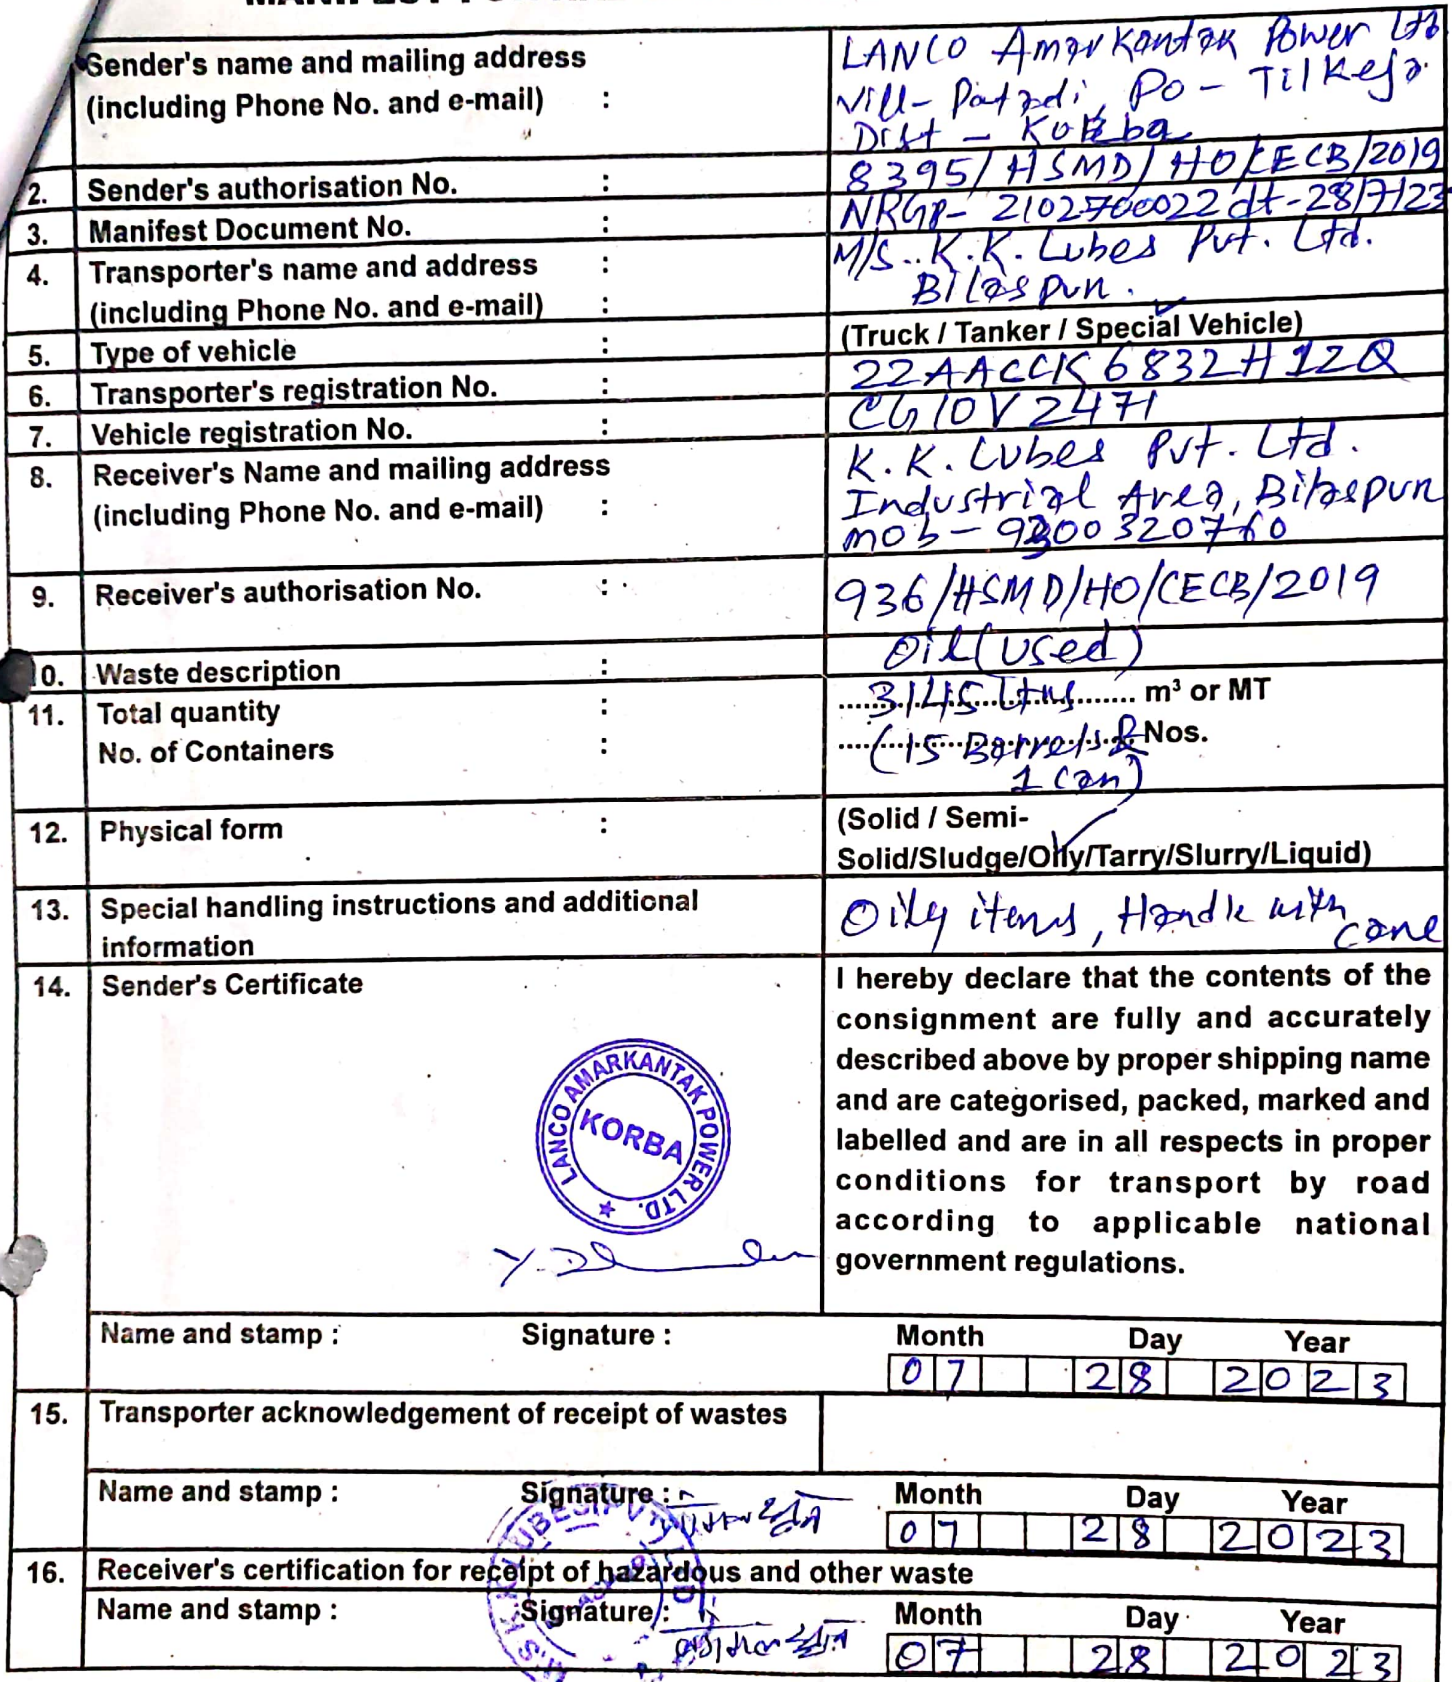 Sender's name and mailing address
(including Phone No. and e-mail) :
LANCO Amarkantak Power Ltd
Vill- Patadi, Po - Tilkeja
Dist - Korba
2. Sender's authorisation No. : 8395/HSMD/HO/CECB/2019
3. Manifest Document No. : NRGP- 2102700022 dt-28/7/23
4. Transporter's name and address : M/S. K.K. Lubes Pvt. Ltd.
(including Phone No. and e-mail) : Bilaspur.
5. Type of vehicle : (Truck / Tanker / Special Vehicle)
6. Transporter's registration No. : 22AACCK6832H1ZQ
7. Vehicle registration No. : CG10V2471
8. Receiver's Name and mailing address
(including Phone No. and e-mail) :
K.K. Lubes Pvt. Ltd.
Industrial Area, Bilaspur
mob - 9300320760
9. Receiver's authorisation No. : 936/HSMD/HO/CECB/2019
10. Waste description : Oil (Used)
11. Total quantity : 3145 Ltrs m³ or MT
No. of Containers : (15 Barrels & Nos.
1 Can)
12. Physical form : (Solid / Semi-
Solid/Sludge/Oily/Tarry/Slurry/Liquid)
13. Special handling instructions and additional
information
Oily items, Handle with
care
14. Sender's Certificate
I hereby declare that the contents of the
consignment are fully and accurately
described above by proper shipping name
and are categorised, packed, marked and
labelled and are in all respects in proper
conditions for transport by road
according to applicable national
government regulations.
LANCO AMARKANTAK POWER LTD.
KORBA
Name and stamp : Signature : Month Day Year
07 28 2023
15. Transporter acknowledgement of receipt of wastes
Name and stamp : Signature : Month Day Year
07 28 2023
16. Receiver's certification for receipt of hazardous and other waste
Name and stamp : Signature : Month Day Year
07 28 2023